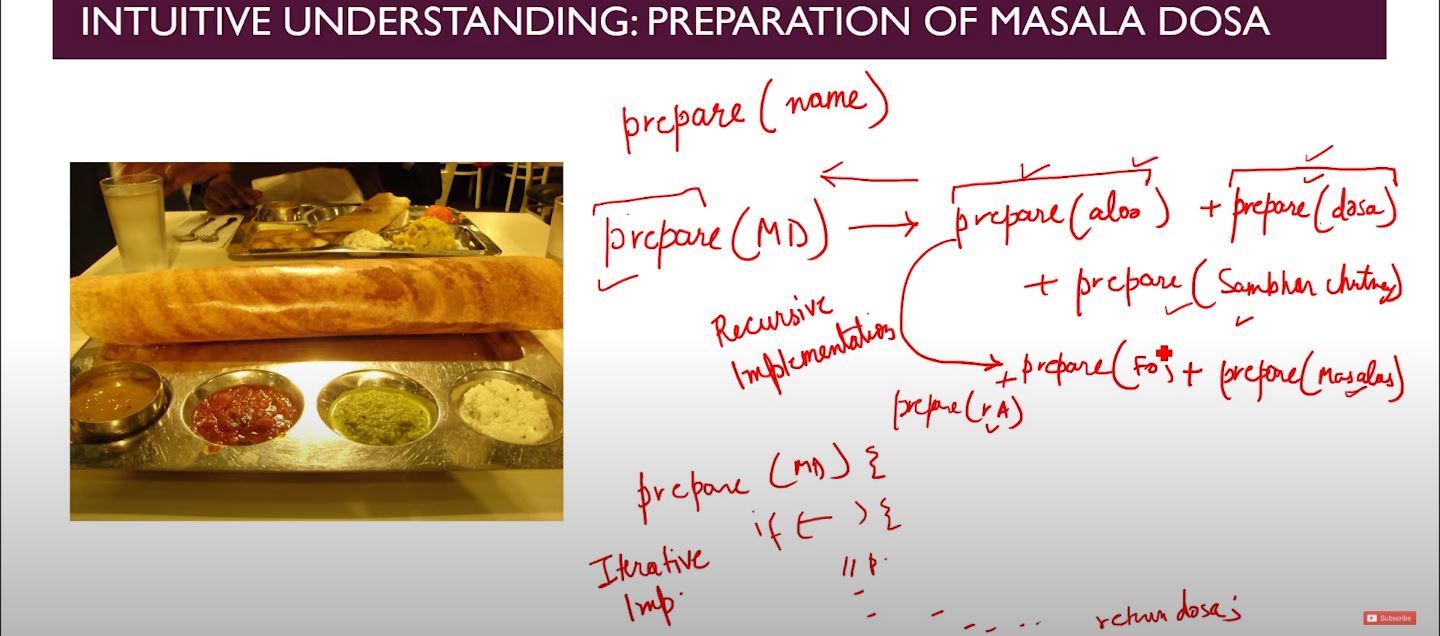 INTUITIVE UNDERSTANDING: PREPARATION OF MASALA DOSA
prepare (name)
prepare (MD) → prepare (aloo) + prepare (dosa)
+ prepare (Sambhar chutney)
Recursive
Implementation
+ prepare (Fo) + prepare (Masalas)
prepare (rA)
prepare (MD) {
if ( — ) {
Iterative
Imp.
// p.
return dosa;
Subscribe